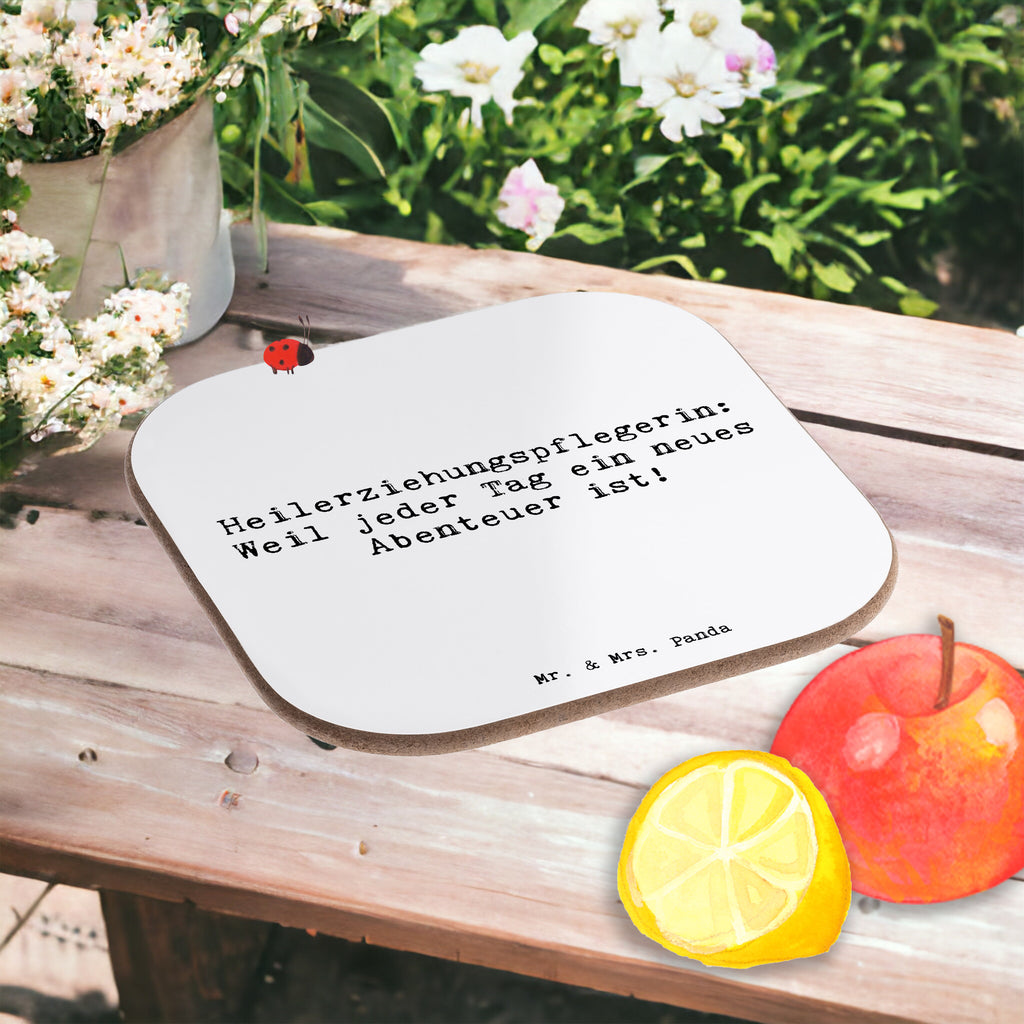 Heilerziehungspflegerin:
Weil jeder Tag ein neues
Abenteuer ist!
Mr. & Mrs. Panda